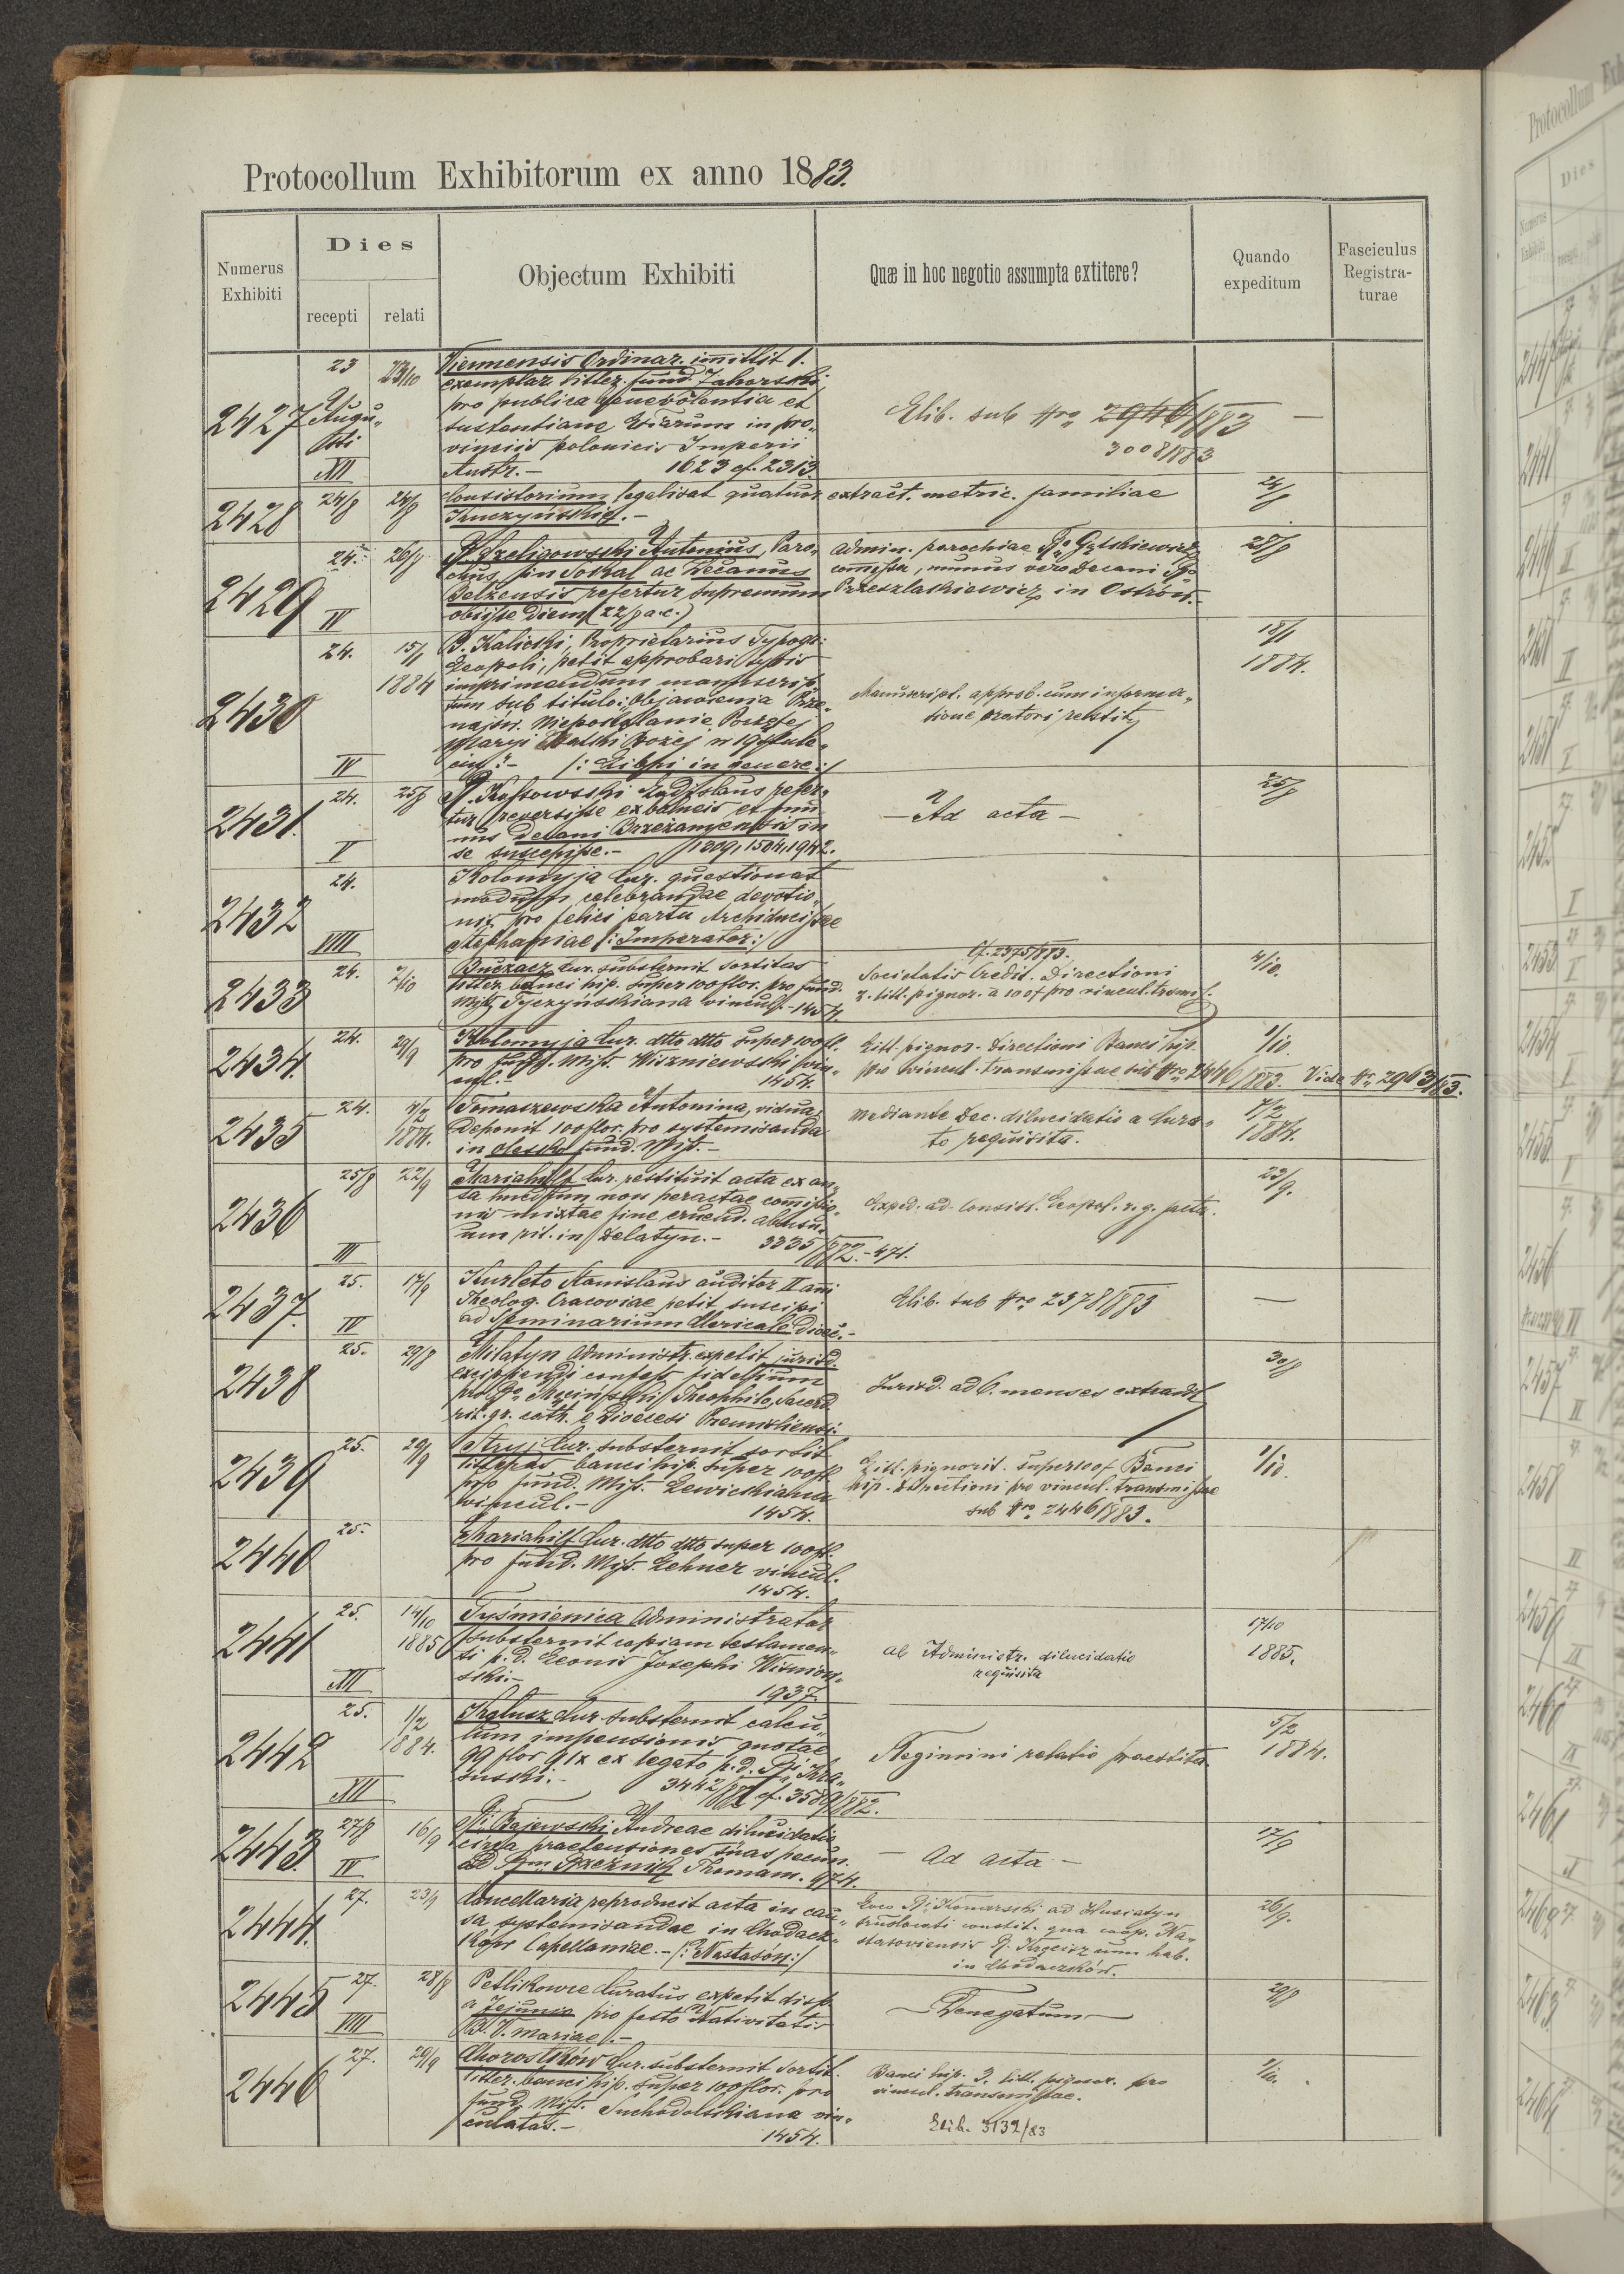 Protocollum Exhibitorum ex anno 1883.
Numerus Exhibiti
Dies
recepti
relati
Objectum Exhibiti
Quæ in hoc negotio assumpta extitere?
Quando expeditum
Fasciculus Registra-
turae
2427
23 Augu„
sti
XII
23/10
Viennensis Ordinar. immittit 1.
exemplar litter. fund. Zahorski
pro publica benevolentia et
sustentiane
in pro„
vinciis polonicis Imperii
Austr.- 1623 cf. 2313.
Elib. sub Nro 2946/883 —
3008/883
2428
24/8
24/8
Consistorium legalisat quatuor extract. metric. familiae
Kruczyński.-
24/8
2429
24.
IV
26/8
Szeligowski Antonius, Paro„
chus in Sokal ac Decanus
Belzensis refertur supremum
obiisse diem (22/8 a.c.)
Admin. parochiae
commissa, munus vero Decani
in Ostrów.-
28/8
2430
24.
IV
15/1
1884
B. Kalicki, Proprietarius Typogr.
Leopoli, petit approbari typis
imprimendum manuscrip„
tum sub titulo: Objawienia Prze„
najśw. Niepokalanie Poczętej
Maryi Matki Bożej w 19 stule„
ciu? - /: Libri in genere:/
Manuscript. approb. cum informa„
tione oratori restit.
18/1
1884.
2431.
24.
V
25/8
Ladislaus refer„
tur reversisse ex balneis et mu„
nus Decani Brzeżanyensis in
se suscepisse.- 1209, 1504, 1942.
- Ad acta -
25/8
2432
24.
VIII
Kolomyja Cur. questionat
modum celebrandae devotio„
nis pro felici partu Archiducissae
Stephaniae /: Imperator:/
2433
24.
2/10
Buczacz Cur. substernit sortitas
litter. banci hip. super 100 flor. pro fund.
Miss. Tyczyńskiana vincul.- 1454.
Cf. 2375/883.
Societatis Credit. Directioni
2. litt. pignor. à 100 f pro vincul. transmis.
4/10.
2434.
24.
29/9
Kolomyja Cur. dtto dtto super 100 fl.
pro fund. Miss. Wiszniewski vin„
cul.- 1454.
Litt. pignor. Directioni Banci hip.
pro vincul. transmissae sub Nro 2446/883. Vide Nr. 2963/83.
1/10.
2435
24.
4/2
1884.
Tomaszewska Antonina, vidua,
deponit 100 flor. pro systemisanda
in Olesko fund. Miss.-
Mediante Dec. dilucidatio a Cura„
to requisita.
7/2
1884.
2436
25/8
III
22/9
Mariahilf Cur. restituit acta ex cau„
sa hucdum non peractae commissio„
nis mixtae fine eruend. abusu„
um rit. in Delatyn.- 3335/882.- 471.
Exped. ad Consist. Leopol. r. g. facta.
23/9.
2437.
25.
IV
17/9
Kurleto Stanislaus auditor II anni
Theolog. Cracoviae petit suscipi
ad Seminarium Clericale dioec.-
Elib. sub Nro 2378/883
—
2438
25.
29/8
Milatyn Administr. expetit jurisd.
excipiendi confess. fidelium
pro
Theophilo, Sacerd.
rit. gr. cath. e Dioecesi Premisliensi.
Jurisd. ad 6. menses extradit.
30/8
2439
25.
29/9
Stryj Cur. substernit sortit.
litteras banci hip. super 100 fl.
pro fund. Miss. Lewickiana
vincul.- 1454.
Litt. pignorit. super 100 f Banci
hip. Directioni pro vincul. transmissae
sub Nro 2446/883.
1/10.
2440
25.
Mariahilf Cur. dtto dtto super 100 fl.
pro fund. Miss. Lehner vincul.
1454.
2441
25.
XII
14/10
1885
Tyśmienica Administrator
substernit copiam testamen„
ti p. d. Leonis Josephi Wiśniow„
ski.- 1937.
Ab Administr. dilucidatio
requisita
17/10
1885.
2442
25.
XII
1/2
1884.
Kałusz Cur. substernit calcu„
lum impensionis quotae
99 flor 91x ex legato p. d.
3442/882 cf. 3589/882.
Regimini relatio praestita.
5/2
1884.
2443.
27/8
IV
16/9
Bajewski Andreae dilucidatio
circa praetensiones suas pecun.
ad
Thomam. 974.
- Ad acta -
17/9
2444.
27.
23/9
Cancellaria reproducit acta in cau„
sa systemisandae in Chodacz„
ków Capellaniae.- /: Nastasów:/
Loco
Komarski ad Husiatyn
constit. qua coop. Na„
stasoviensis
hab.
in Chodaczków.
26/9.
2445
27.
VIII
28/8
Petlikowce Curatus expetit disp.
a Jejunio pro festo Nativitatis
B. V. Mariae.-
- Denegatum -
29/8
2446
27.
29/9
Chorostków Cur. substernit sortit.
litter. banci hip. super 100 flor. pro
fund. Miss. Suchodolskiana vin„
culatas.- 1454.
Banci hip. 3. litt. pignor. pro
vincul. transmissae.
Elib. 3132/83
1/10.